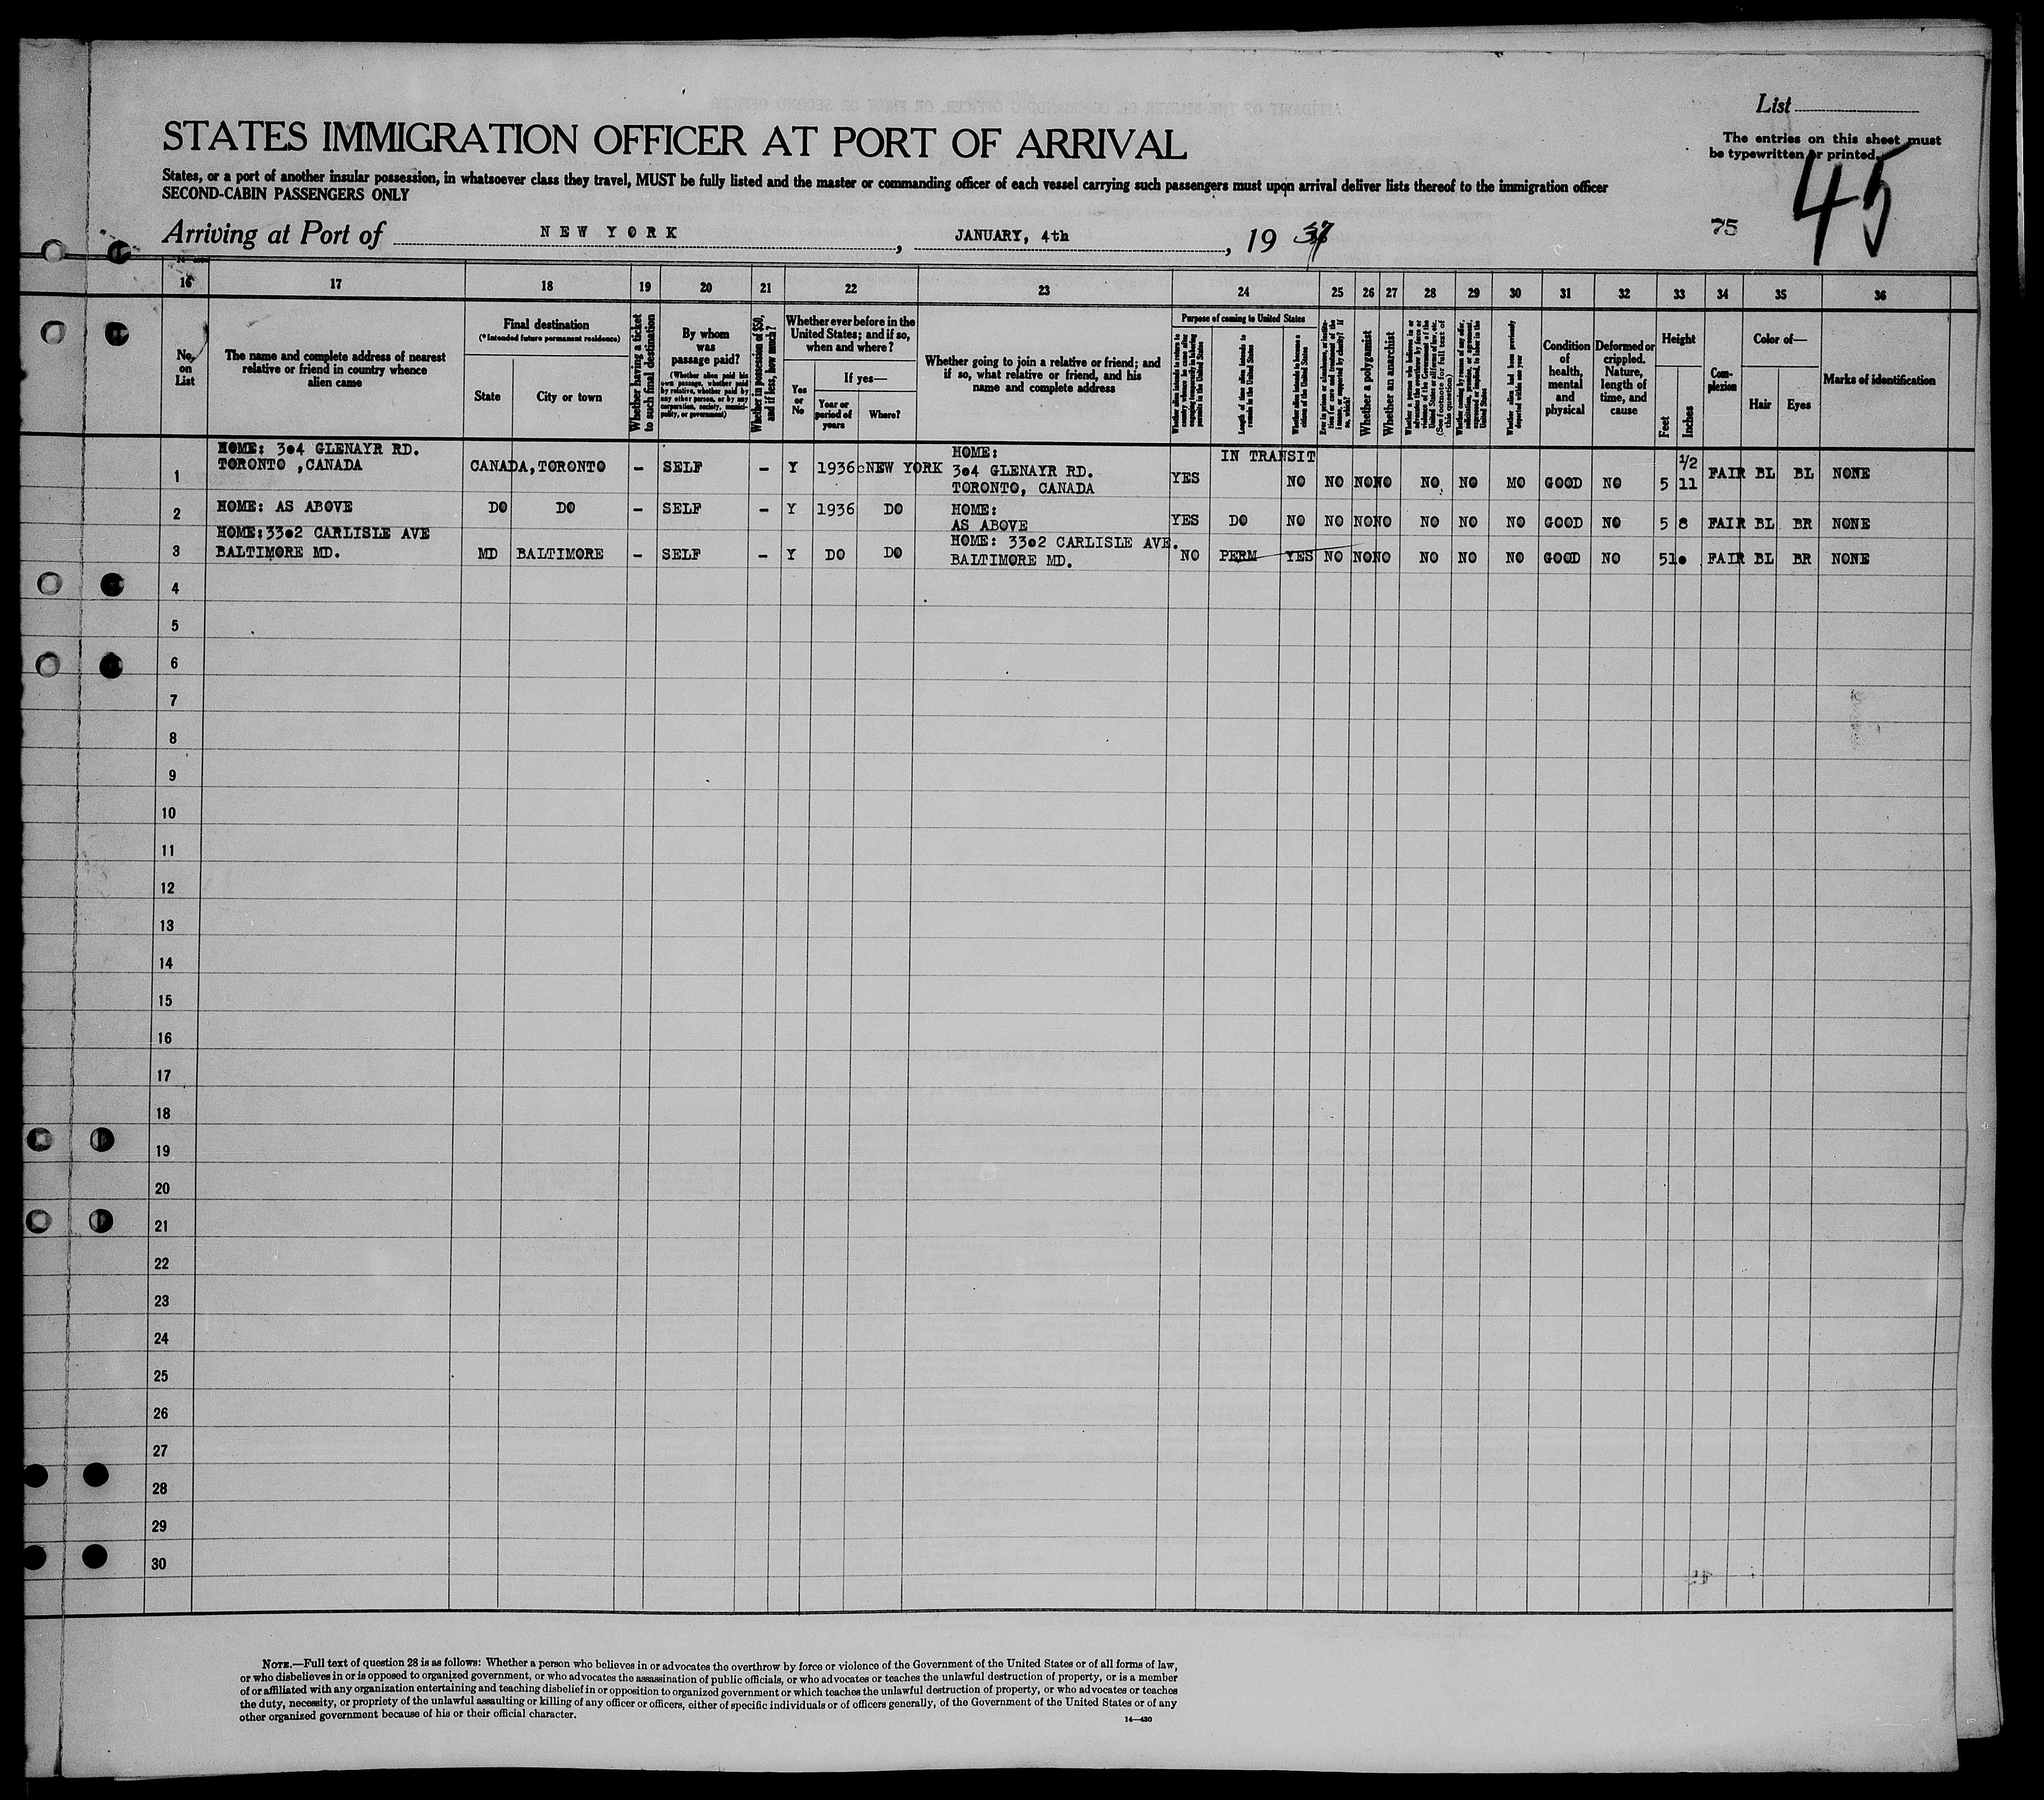 List
STATES IMMIGRATION OFFICER AT PORT OF ARRIVAL
The entries on this sheet must
be typewritten or printed.
States, or a port of another insular possession, in whatsoever class they travel, MUST be fully listed and the master or commanding officer of each vessel carrying such passengers must upon arrival deliver lists thereof to the immigration officer
SECOND-CABIN PASSENGERS ONLY
45
75
Arriving at Port of NEW YORK, JANUARY, 4th, 19 37
16 17 18 19 20 21 22 23 24 25 26 27 28 29 30 31 32 33 34 35 36
No. on List
The name and complete address of nearest relative or friend in country whence alien came
Final destination
(*Intended future permanent residence)
State
City or town
Whether having a ticket to such final destination
By whom was passage paid?
(Whether alien paid his own passage, whether paid by relative, whether paid by any other person, or by any corporation, society, municipality, or government)
Whether in possession of $50, and if less, how much?
Whether ever before in the United States; and if so, when and where?
Yes or No
If yes—
Year or period of years
Where?
Whether going to join a relative or friend; and if so, what relative or friend, and his name and complete address
Purpose of coming to United States
Length of time alien intends to remain in the United States
Whether alien intends to become a citizen of the United States
Whether a polygamist
Whether an anarchist
(See footnote for full text of this question)
Whether alien had been previously deported within one year
Condition of health, mental and physical
Deformed or crippled. Nature, length of time, and cause
Height
Feet
Inches
Complexion
Color of—
Hair
Eyes
Marks of identification
HOME: 304 GLENAYR RD.
TORONTO ,CANADA
1 CANADA,TORONTO - SELF - Y 1936 NEW YORK
HOME:
304 GLENAYR RD.
TORONTO, CANADA
IN TRANSIT
YES NO NO NO NO NO NO MO GOOD NO 5 11 1/2 FAIR BL BL NONE
2 HOME: AS ABOVE DO DO - SELF - Y 1936 DO
HOME:
AS ABOVE
YES DO NO NO NO NO NO NO NO GOOD NO 5 8 FAIR BL BR NONE
HOME:3302 CARLISLE AVE
3 BALTIMORE MD. MD BALTIMORE - SELF - Y DO DO
HOME: 3302 CARLISLE AVE.
BALTIMORE MD.
NO PERM YES NO NO NO NO NO NO GOOD NO 5 10 FAIR BL BR NONE
4
5
6
7
8
9
10
11
12
13
14
15
16
17
18
19
20
21
22
23
24
25
26
27
28
29
30
NOTE.—Full text of question 28 is as follows: Whether a person who believes in or advocates the overthrow by force or violence of the Government of the United States or of all forms of law,
or who disbelieves in or is opposed to organized government, or who advocates the assassination of public officials, or who advocates or teaches the unlawful destruction of property, or is a member
of or affiliated with any organization entertaining and teaching disbelief in or opposition to organized government or which teaches the unlawful destruction of property, or who advocates or teaches
the duty, necessity, or propriety of the unlawful assaulting or killing of any officer or officers, either of specific individuals or of officers generally, of the Government of the United States or of any
other organized government because of his or their official character.
14—430